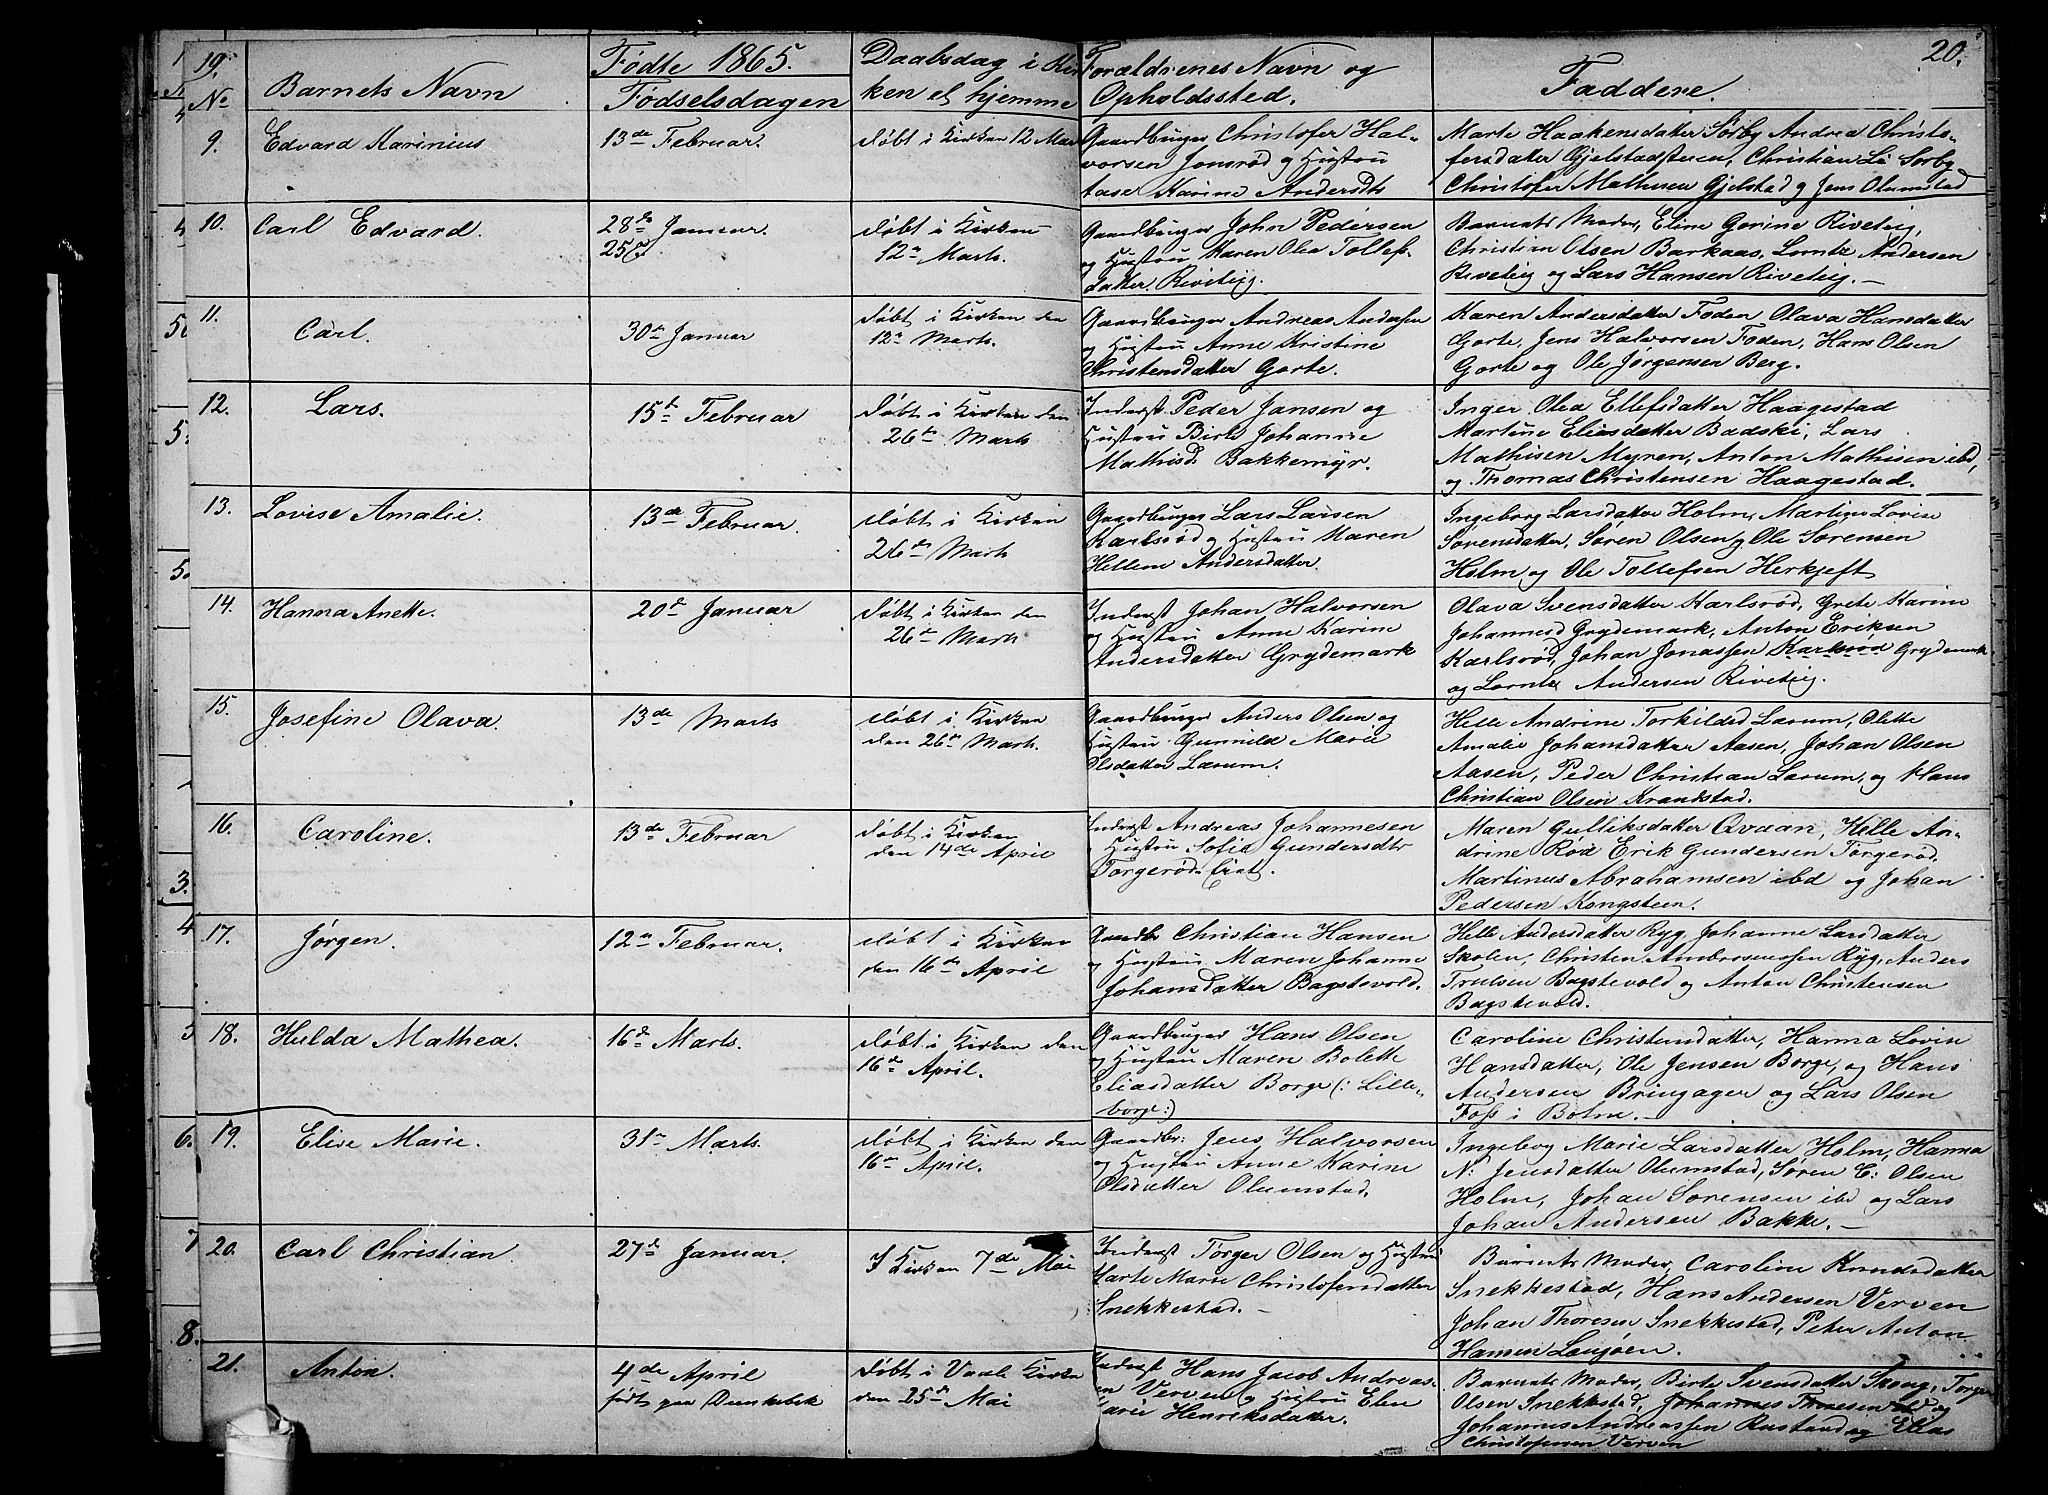 19. Barnets Navn Fødte 1865. Daabsdag i Kir Forældrenes Navn og Faddere. 20.
No Fødselsdagen ken el hjemme Opholdssted.
9. Edvard Karinius 13de Februar. døbt i Kirken 12 Mar Gaardbruger Christofer Hal- Marte Haakensdatter Sørby Andrea Christo-
vorsen Jonsrød og Hustru fersdatter Gjelstadsteen, Christian Li Sørby
Karine Andersdtr Christofer Mathisen Gjelstad og Jens Olumstad
10. Carl Edvard. 28de Januar. døbt i Kirken Gaardbruger John Pedersen Barnets Moder, Eline Gorine Riveteig,
25 12te Marts. og Hustru Maren Olea Tollefs- Christian Olsen Barkaas, Lorntz Andersen
datter. Riveteig. Riveteig og Lars Hansen Riveteig.-
11. Carl. 30te Januar døbt i Kirken den Gaardbruger Andreas Andersen Karen Andersdatter Foden Olava Hansdatter
12te Marts. og Hustru Anne Kristine Gorte, Jens Halvorsen Foden, Hans Olsen
Christensdatter Gorte. Gorte og Ole Jørgensen Berg.
12. Lars. 15de Februar døbt i Kirken den Inderst Peder Jansen og Inger Olea Ellefsdatter Haagestad
26te Marts Hustru Birte Johanne Martine Eliasdatter Badski, Lars
Mathisd. Bakkemyr. Mathisen Myren, Anton Mathisen ibd,
og Thomas Christensen Haagestad.
13. Lovise Amalie. 13de Februar. døbt i Kirken Gaardbruger Lars Larsen Ingeborg Larsdatter Holm, Martine Lovise
26de Marts Karlsrød og Hustru Maren Sørensdatter, Søren Olsen og Ole Sørensen
Hellene Andersdatter. Holm og Ole Tollefsen Herkjeft
14. Hanna Anette. 20de Januar døbt i Kirken den Inderst Johan Halvorsen Olava Svensdatter Karlsrød, Grete Karine
26te Marts og Hustru Anne Karine Johannesd Grydemark, Anton Eriksen
Andersdatter Grydemark Karlsrød, Johan Jonassen Karlsrød Grydemark
og Lorntz Andersen Riveteig.
15. Josefine Olava. 13de Marts døbt i Kirken Gaardbruger Anders Olsen og Helle Andrine Torkildsd Lærum, Olette
den 26te Marts. Hustru Gunnild Marie Amalie Johansdatter Aasen, Johan Olsen
Olsdatter Lærum. Aasen, Peder Christian Lærum, og Hans
Christian Olsen Krandstad.
16. Caroline. 13de Februar døbt i Kirken Inderst Andreas Johannesen Maren Gulliksdatter Qvaan, Helle An-
den 14de April Hustru Sofie Gundersdtr drine Rød Erik Gundersen Torgerød,
Torgerød. Martinus Abrahamsen ibd og Johan
Pedersen Kongsteen.
17. Jørgen. 12te Februar. døbt i Kirken Gaardbr Christian Hansen Helle Andersdatter Ryg, Johanne Larsdatter
den 16de April og Hustru Maren Johanne Skolen, Christen Ambrosiussen Ryg, Anders
Johansdatter Bagstevold. Trulsen Bagstevold og Anton Christensen
Bagstevold.
18. Hulda Mathea. 16de Marts. døbt i Kirken den Gaardbruger Hans Olsen Caroline Christensdatter, Hanna Lovise
16de April. og Hustru Maren Bolette Hansdatter, Ole Jensen Borge, og Hans
Eliasdatter Borge (: Lille- Andersen Bringager og Lars Olsen
borge:) Foss i Botne.-
19. Elise Marie. 31te Marts. døbt i Kirken den Gaardbr: Jens Halvorsen Ingeborg Marie Larsdatter Holm, Hanna
16de April. og Hustru Anne Karine N. Jensdatter Olumstad, Søren C. Olsen
Olsdatter Olumstad. Holm, Johan Sørensen ibd og Lars
Johan Andersen Bakke.-
20. Carl Christian 27de Januar. I Kirken 7de Mai Inderst Torger Olsen og Hustru Barnets Moder, Caroline Knudsdatter
Marte Marie Christofersdatter Snekkestad, Hans Andersen Verven
Snekkestad.- Johan Thoresen Snekkestad, Peter Anton
Hansen Langøen.
21. Anton. 4de April døbt i Vaale Kirke Inderst Hans Jacob Andreas- Barnets Moder, Birte Svensdatter Skoug, Torger
født paa Dunkebek den 25de Mai en Verven og Hustru Elen Olsen Snekkestad, Johannes Thoresen ibd og
Marie Henriksdatter. Johannes Andreassen Rustand og Elias
Christofersen Verven